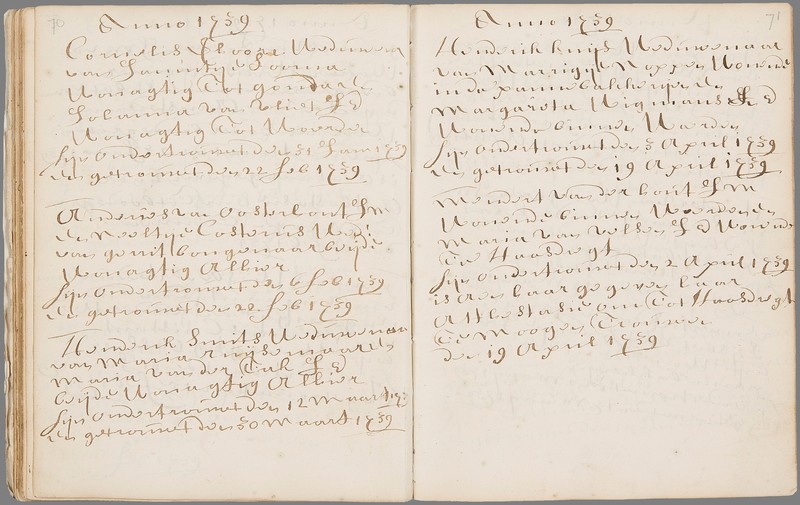 70
Anno 1739
Cornelis Weduwenaar
van Jannitye
Wonagtig Tot
Johanna van Vliet J D
Wonagtig Tot Woerden
sijn ondertrouwet den 31 Jan 1739
en getrouwet den 22 feb 1739
Anderies van Oosterlout J M
en Neeltye Costerus Wed:
van gerrit bongenaar beijde
Wonagtig Alhier
sijn ondertrouwet den 6 feb 1739
en getrouwet den 22 feb 1739
Henderik Smits Weduwenaar
van Maria
Maria van der Tak J D
beijde Wonagtig Alhier
sijn ondertrouwet den 12 Maart 1739
en getrouwet den 30 Maart 1739
71
Anno 1739
Henderik Weduwenaar
van Marrigje Woonende
in de en
Margarita Wigmans J D
Woonende binnen Woerden
sijn ondertrouwet den 3 April 1739
en getrouwet den 19 April 1739
Meindert van der hout J M
Wonende binnen Woerden en
Maria van Velsen J D Wonende
Te Haasdregt
sijn ondertrouwet den 2 April 1739
is aen haar gegeven haar
Attestasie om Tot Haasdregt
Te Moogen Trouwen
den 19 April 1739